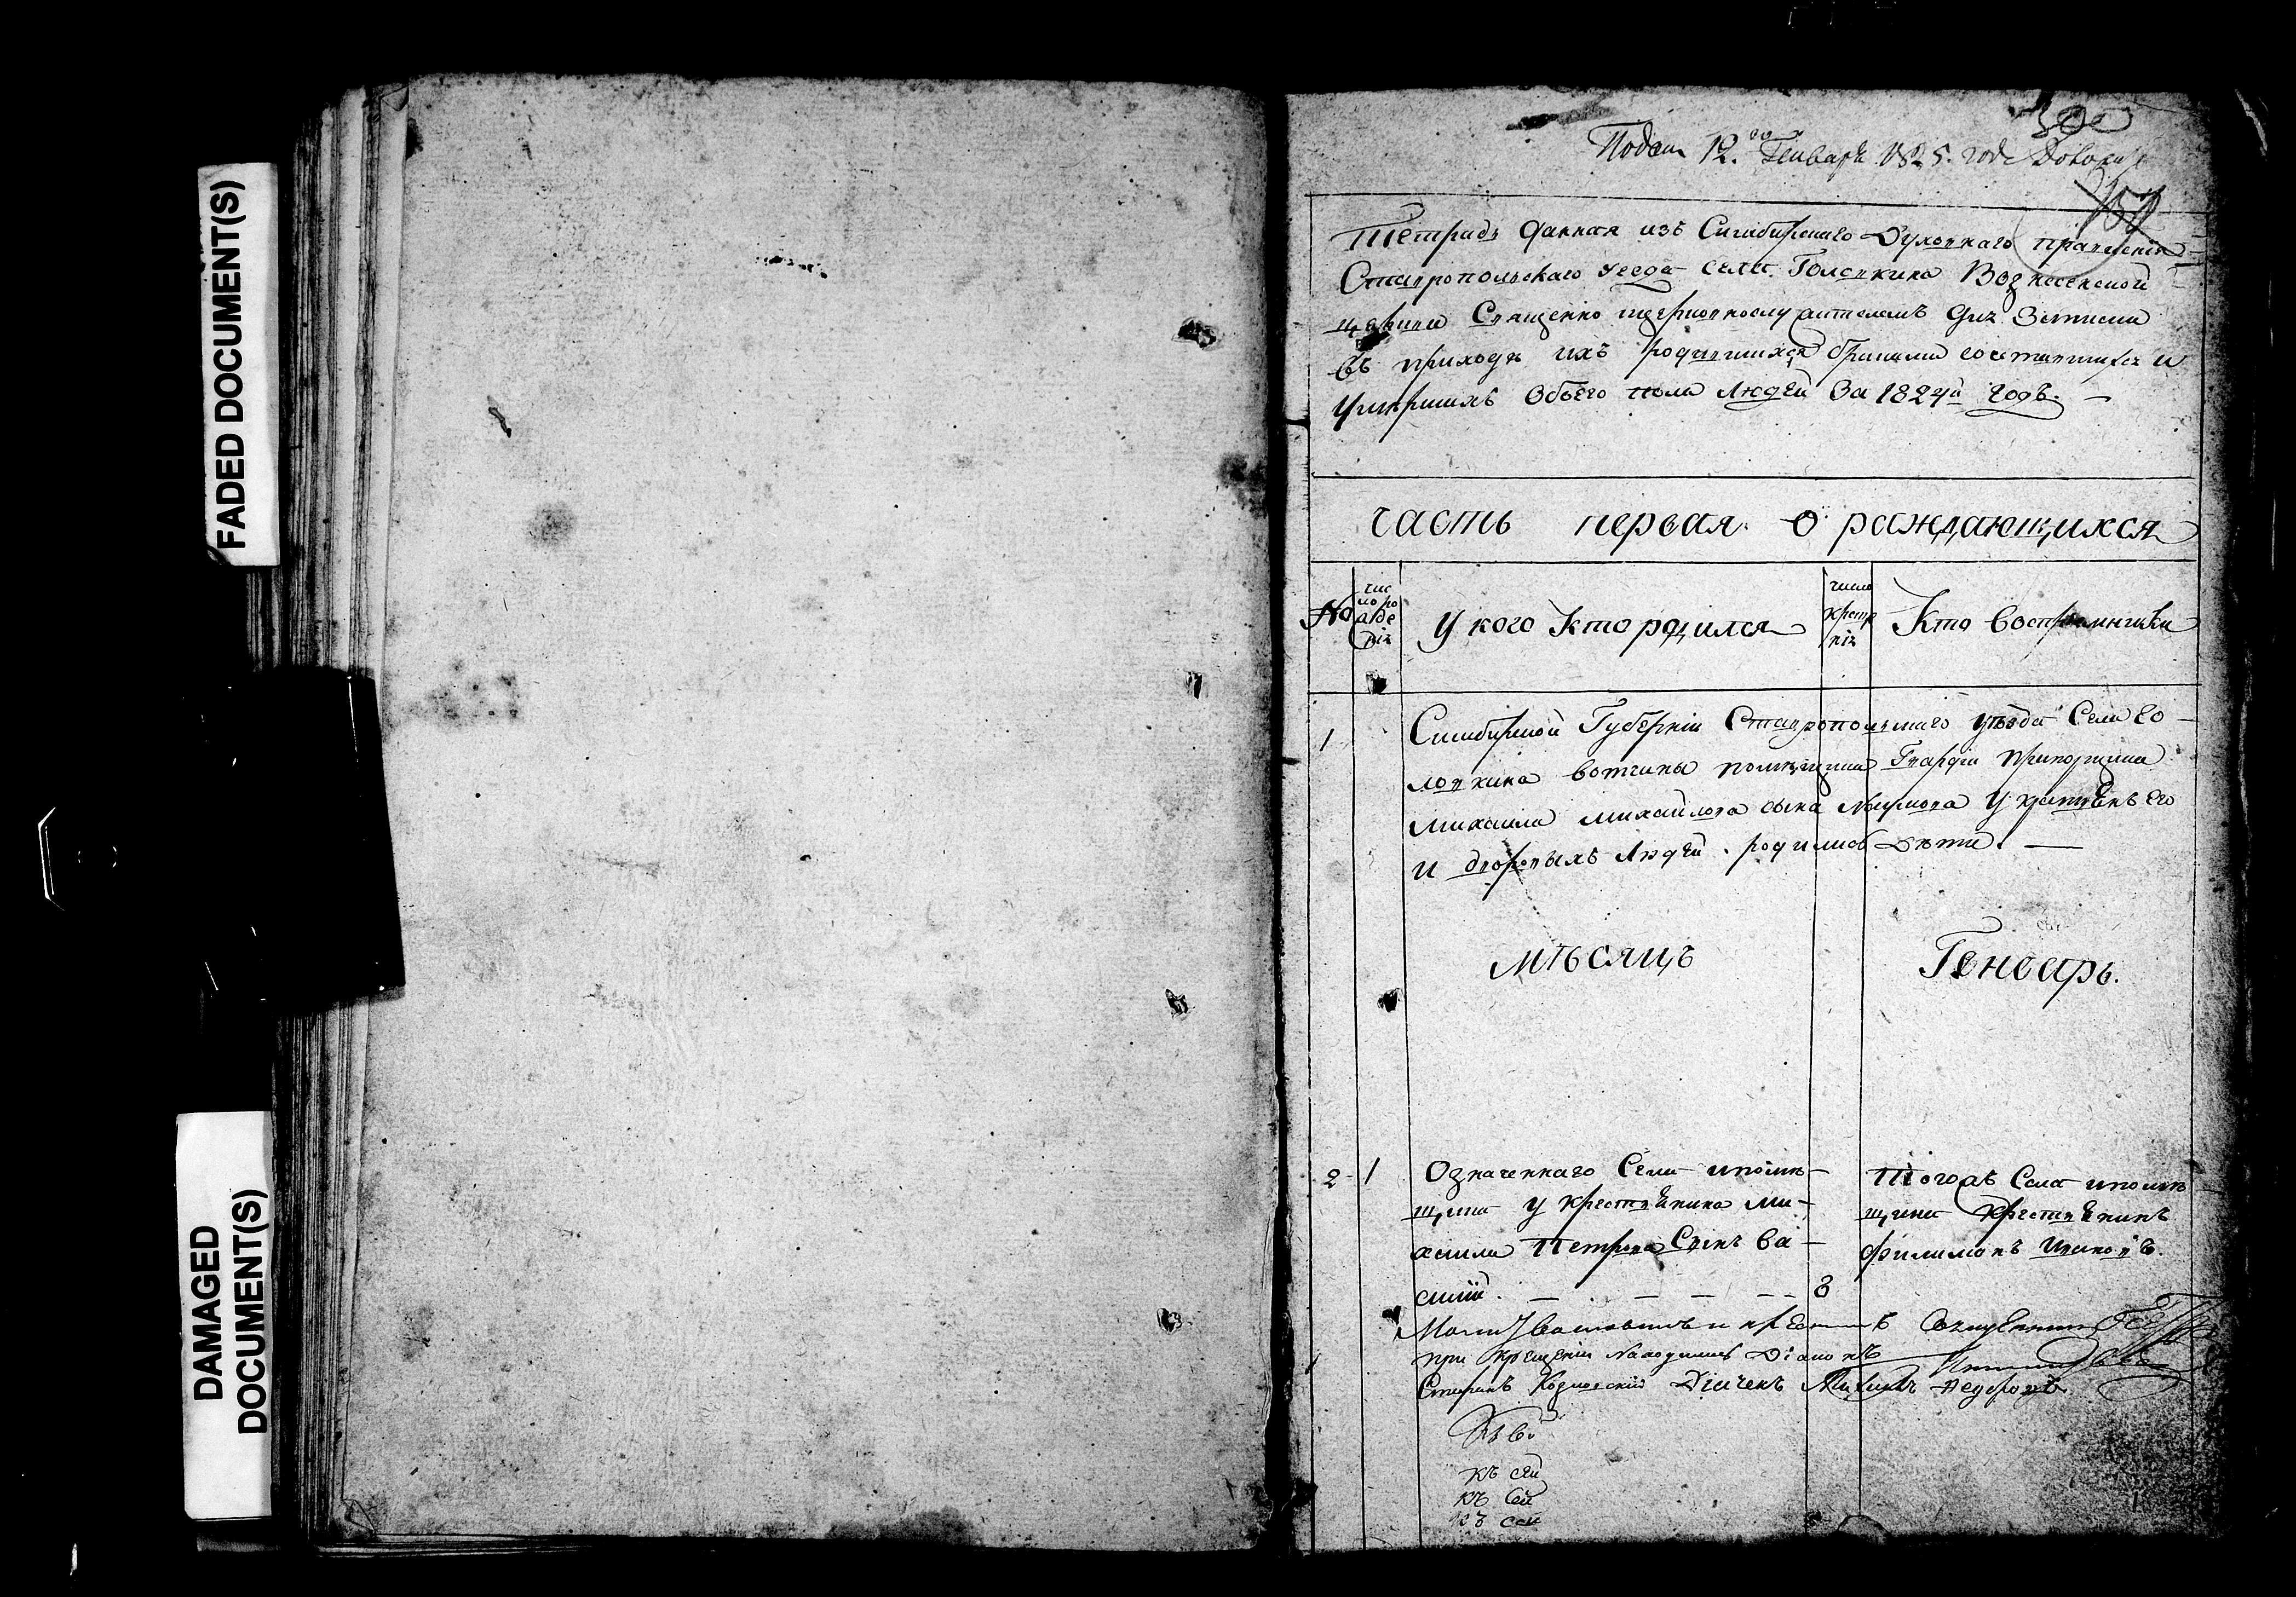 FADED DOCUMENT(S)
DAMAGED
DOCUMENT(S)
Подан 12.го Генваря 1825. года
Тетрадь данная изъ Симбирскаго Духовнаго правленія
Ставропольскаго уезда села Головкина Вознесенской
церкви Священно церковнослужителемъ для Записки
въ приходѣ ихъ родившихся браками сочетавшихся и
умершихъ Обоего пола людей За 1824й годъ.
часть первая о раждающихся
№
чис
ло ро
жде
нія
У кого кто родился
число
крещ
нія
Кто восприемники
1
Симбирской Губерніи Ставропольскаго уѣзда Села Го-
ловкина вотчины помѣщика Гвардіи прапорщика
Михаила Михайлова сына Наумова у крестьянъ его
и дворовыхъ людей родились дѣти.
мѣсяцъ
Генварь.
2 1
Означеннаго Села и помѣ-
щика у крестьянина Ми-
хаила Петрова Сынъ Ва-
силій.
8
Тогожъ Села и помѣ-
щика крестьянинъ
Филимонъ Ивановъ.
Молитвовалъ и крестилъ Священникъ
при крещеніи находились Діаконъ
Стефанъ Дьячекъ Федоровъ
къ сей
къ сей
къ сей